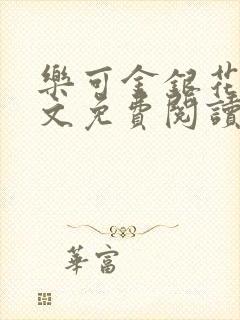 樂可金銀花
文免費閱讀
華富